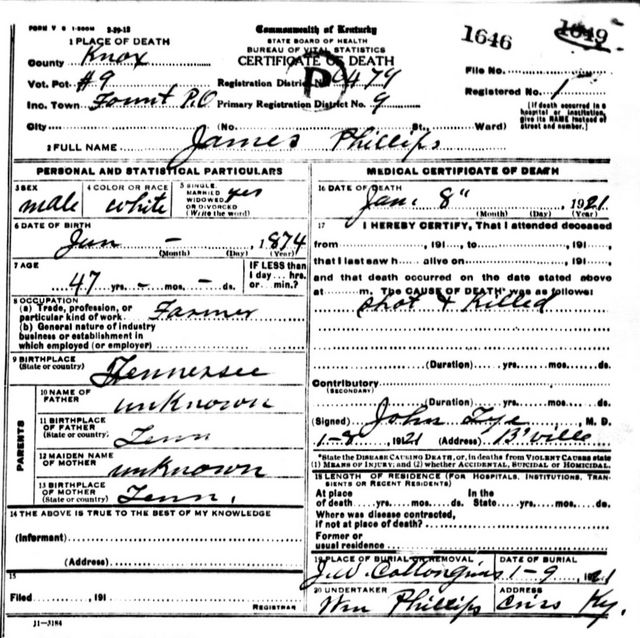 FORM V S 1-500M 2-29-12
Commonwealth of Kentucky
STATE BOARD OF HEALTH
BUREAU OF VITAL STATISTICS
CERTIFICATE OF DEATH
1646
1649
1 PLACE OF DEATH
County Knox
Vot. Pct. #9
Inc. Town Fount P.O
City (No. St. Ward)
Registration District No. 479
P
Primary Registration District No. 9
File No.
Registered No. 1
(If death occurred in a hospital or institution, give its NAME instead of street and number.)
2 FULL NAME James Phillips
PERSONAL AND STATISTICAL PARTICULARS
3 SEX male
4 COLOR OR RACE white
5 SINGLE, MARRIED WIDOWED OR DIVORCED (Write the word) yes
6 DATE OF BIRTH
Jun - , 1874
(Month) (Day) (Year)
7 AGE
47 yrs. - mos. - ds.
IF LESS than 1 day ... hrs. or ... min.?
8 OCCUPATION
(a) Trade, profession, or particular kind of work Farmer
(b) General nature of industry business or establishment in which employed (or employer)
9 BIRTHPLACE (State or country) Tennessee
PARENTS
10 NAME OF FATHER unknown
11 BIRTHPLACE OF FATHER (State or country) Tenn
12 MAIDEN NAME OF MOTHER unknown
13 BIRTHPLACE OF MOTHER (State or country) Tenn.
14 THE ABOVE IS TRUE TO THE BEST OF MY KNOWLEDGE
(Informant)
(Address)
15
Filed , 191
REGISTRAR
11-3184
MEDICAL CERTIFICATE OF DEATH
16 DATE OF DEATH
Jan. 8" , 1921
(Month) (Day) (Year)
17 I HEREBY CERTIFY, That I attended deceased
from , 191 , to , 191 ,
that I last saw h alive on , 191 ,
and that death occurred on the date stated above
at m. The CAUSE OF DEATH* was as follows:
shot & Killed
(Duration) yrs. mos. ds.
Contributory
(SECONDARY)
(Duration) yrs. mos. ds.
(Signed) John Tye , M. D.
1-8 , 1921 (Address) B'ville
*State the DISEASE CAUSING DEATH, or, in deaths from VIOLENT CAUSES state
(1) MEANS OF INJURY; and (2) whether ACCIDENTAL, SUICIDAL or HOMICIDAL.
18 LENGTH OF RESIDENCE (FOR HOSPITALS, INSTITUTIONS, TRANSIENTS OR RECENT RESIDENTS)
At place of death yrs. mos. ds. In the State yrs. mos. ds.
Where was disease contracted, if not at place of death?
Former or usual residence
19 PLACE OF BURIAL OR REMOVAL
J.W.
DATE OF BURIAL
1-9 , 1921
20 UNDERTAKER
Wm Phillips
ADDRESS
Ky.